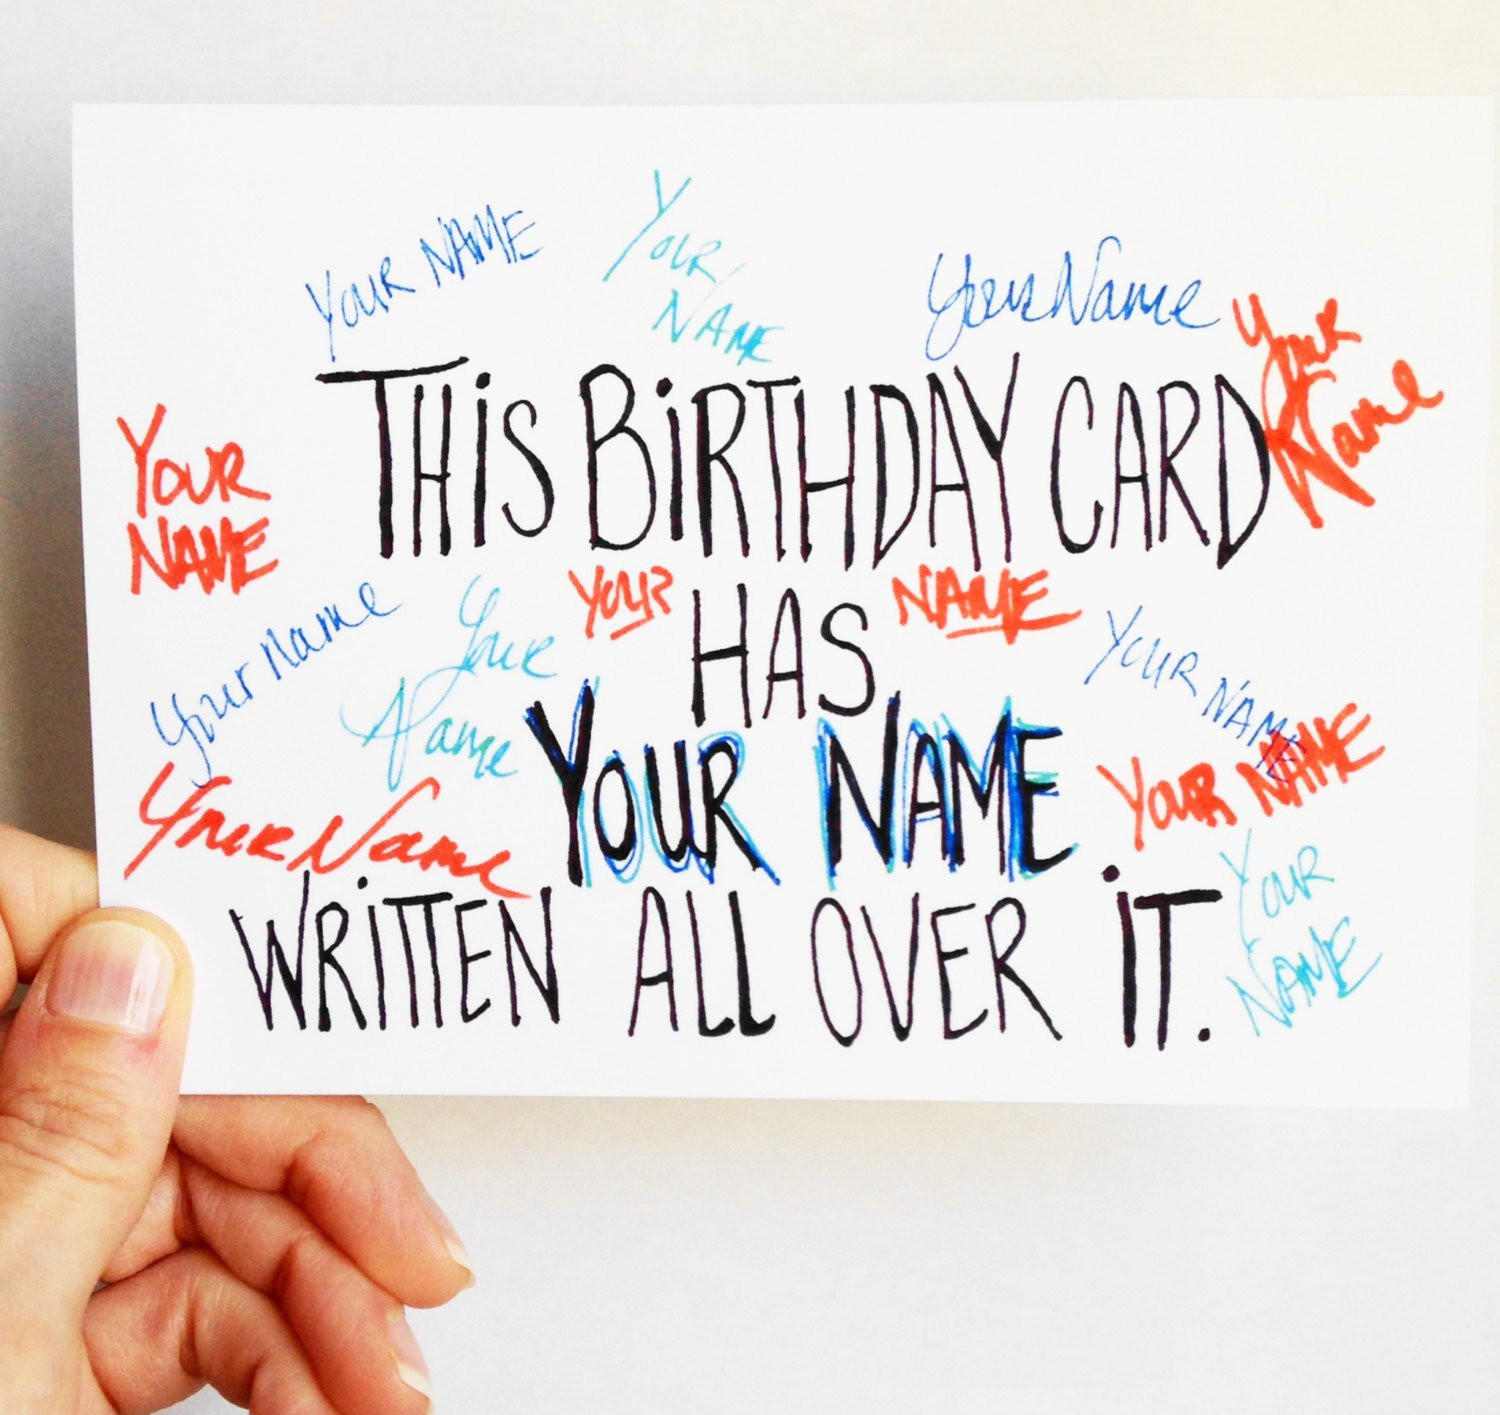 YOUR NAME
YOUR
NAME
Your Name
Your
Name
THiS BiRTHDAY CARD
YOUR
NAME
YOUR
NAME
HAS
Your name
Your
Name
YOUR NAME
YOUR NAME
YOUR NAME
Your Name
YOUR
NAME
WRiTTEN ALL OVER iT.